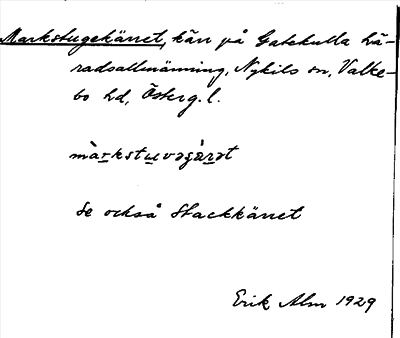 Markstugekärret, kärr på Gatekulla hä-
radsallmänning, Nykils sn, Valke-
bo hd, Österg.l.
màrkstuvəɡàrət
Se också Stackkärret
Erik Alm 1929